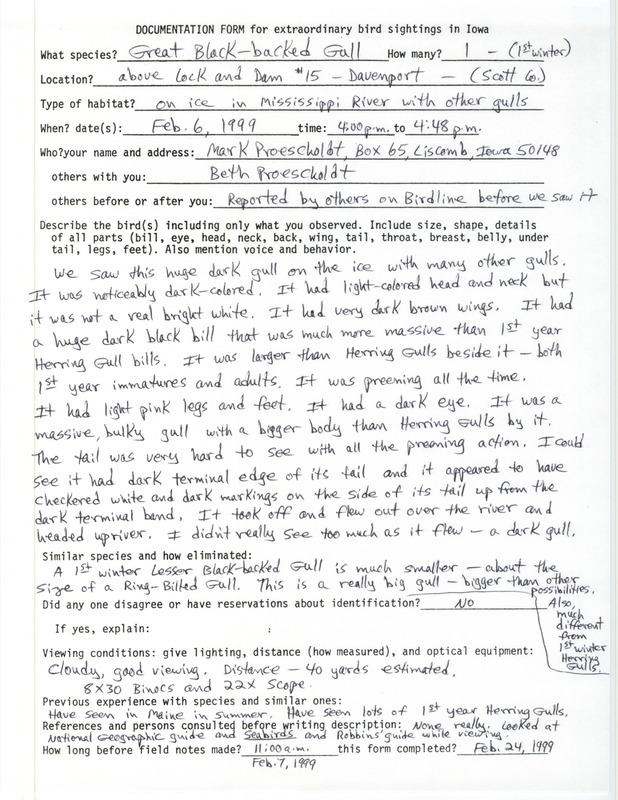 DOCUMENTATION FORM for extraordinary bird sightings in Iowa
What species? Great Black-backed Gull How many? 1 - (1st winter)
Location? above Lock and Dam #15 - Davenport - (Scott Co.)
Type of habitat? on ice in Mississippi River with other gulls
When? date(s): Feb. 6, 1999 time: 4:00 p.m. to 4:48 p.m.
Who?your name and address: Mark Proescholdt, Box 65, Liscomb, Iowa 50148
others with you: Beth Proescholdt
others before or after you: Reported by others on Birdline before we saw it
Describe the bird(s) including only what you observed. Include size, shape, details
of all parts (bill, eye, head, neck, back, wing, tail, throat, breast, belly, under
tail, legs, feet). Also mention voice and behavior.
We saw this huge dark gull on the ice with many other gulls.
It was noticeably dark-colored. It had light-colored head and neck but
it was not a real bright white. It had very dark brown wings. It had
a huge dark black bill that was much more massive than 1st year
Herring Gull bills. It was larger than Herring Gulls beside it - both
1st year immatures and adults. It was preening all the time.
It had light pink legs and feet. It had a dark eye. It was a
massive, bulky gull with a bigger body than Herring Gulls by it.
The tail was very hard to see with all the preening action. I could
see it had dark terminal edge of its tail and it appeared to have
checkered white and dark markings on the side of its tail up from the
dark terminal band. It took off and flew out over the river and
headed upriver. I didn't really see too much as it flew - a dark gull.
Similar species and how eliminated:
A 1st winter Lesser Black-backed Gull is much smaller - about the
size of a Ring-Billed Gull. This is a really big gull - bigger than other
possibilities.
Did any one disagree or have reservations about identification? No
Also,
much
different
from
1st winter
Herring
Gulls.
If yes, explain:
Viewing conditions: give lighting, distance (how measured), and optical equipment:
Cloudy, good viewing. Distance - 40 yards estimated.
8x30 Binocs and 22x Scope.
Previous experience with species and similar ones:
Have seen in Maine in summer. Have seen lots of 1st year Herring Gulls.
References and persons consulted before writing description: None, really. Looked at
National Geographic guide and Seabirds and Robbins' guide while viewing.
How long before field notes made? 11:00 a.m. this form completed? Feb. 24, 1999
Feb. 7, 1999